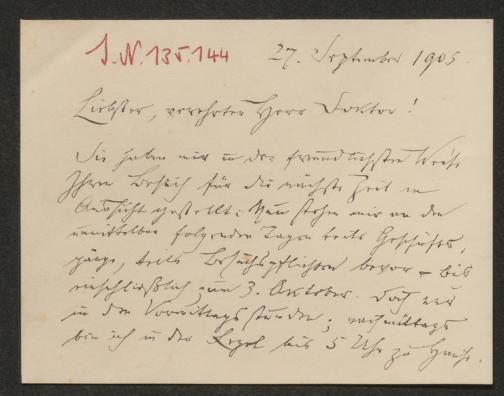 I.N. 135.144
27. September 1905.
Liebster, verehrter Herr Doktor!
Sie haben mir in der freundlichsten Weise
Ihren Besuch für die nächste Zeit in
Aussicht gestellt. Nun stehen mir an den
unmittelbar folgenden Tagen teils Geschäfts-
gänge, teils Besuchspflichten bevor – bis
einschließlich zum 3. Oktober. Doch nur
in den Vormittagsstunden; nachmittags
bin ich in der Regel bis 5 Uhr zu Hause.